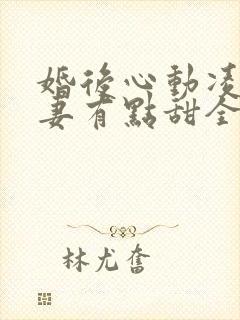 婚後心動凌
妻有點甜全
林尤奮